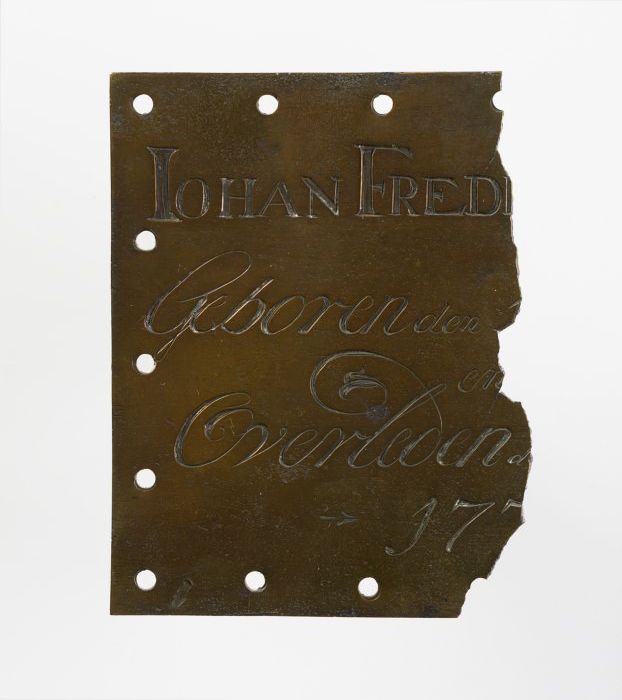 IOHAN FREDI
Geboren den
en
Overleden d
177